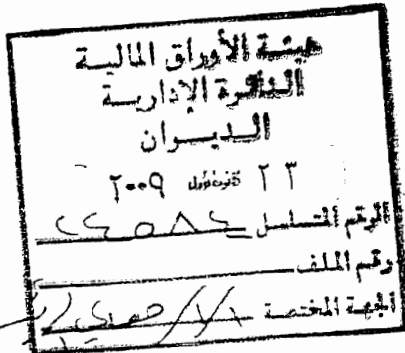 هيئة الأوراق المالية
الدائرة الإدارية
الديوان
٢٣ كانون أول ٢٠٠٩
الرقم المتسلسل
رقم الملف
الجهة المختصة